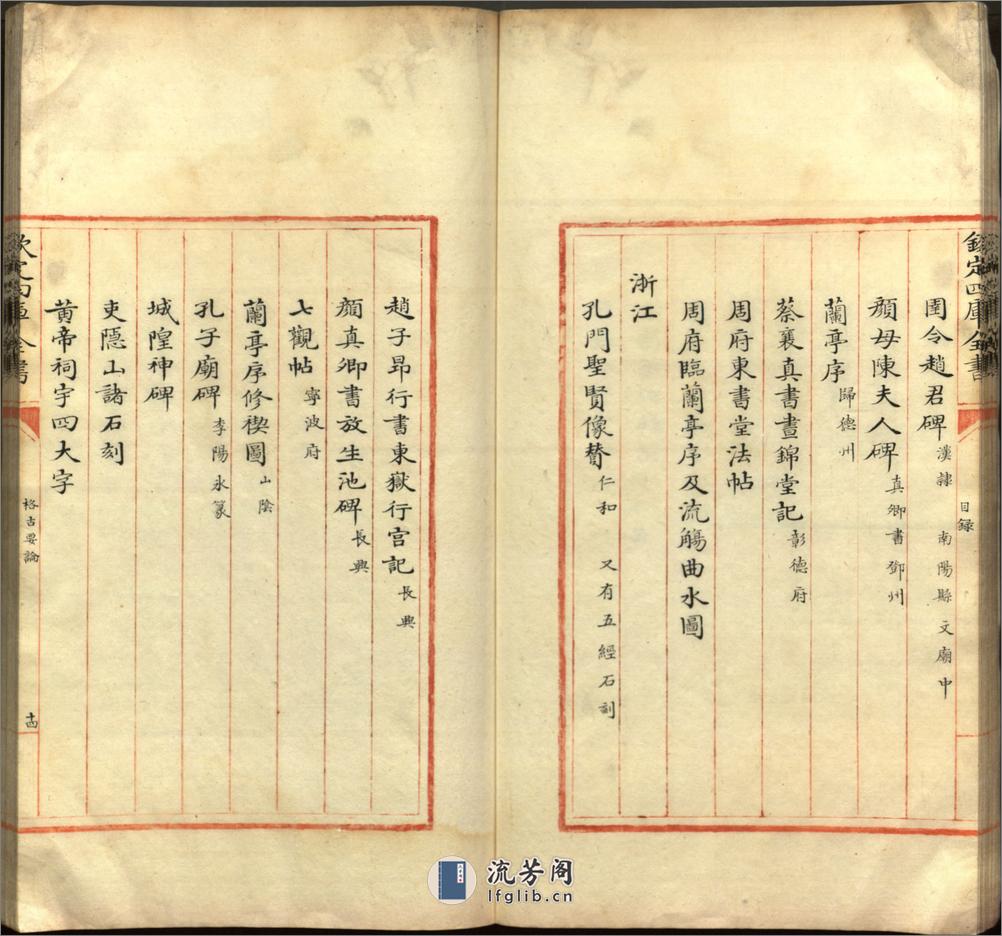 欽定四庫全書
目録
圉令趙君碑 漢隸 南陽縣文廟中
顔母陳夫人碑 真卿書鄧州
蘭亭序 歸德州
蔡襄真書晝錦堂記 彰德府
周府東書堂法帖
周府臨蘭亭序及流觴曲水圖
浙江
孔門聖賢像贊 仁和 又有五經石刻
趙子昂行書東嶽行宫記 長興
顔真卿書放生池碑 長興
七觀帖 寧波府
蘭亭序修禊圖 山陰
孔子廟碑 李陽氷篆
城隍神碑
吏隱山諸石刻
黄帝祠宇四大字
欽定四庫全書
格古要論
十四
流芳阁
lfglib.cn